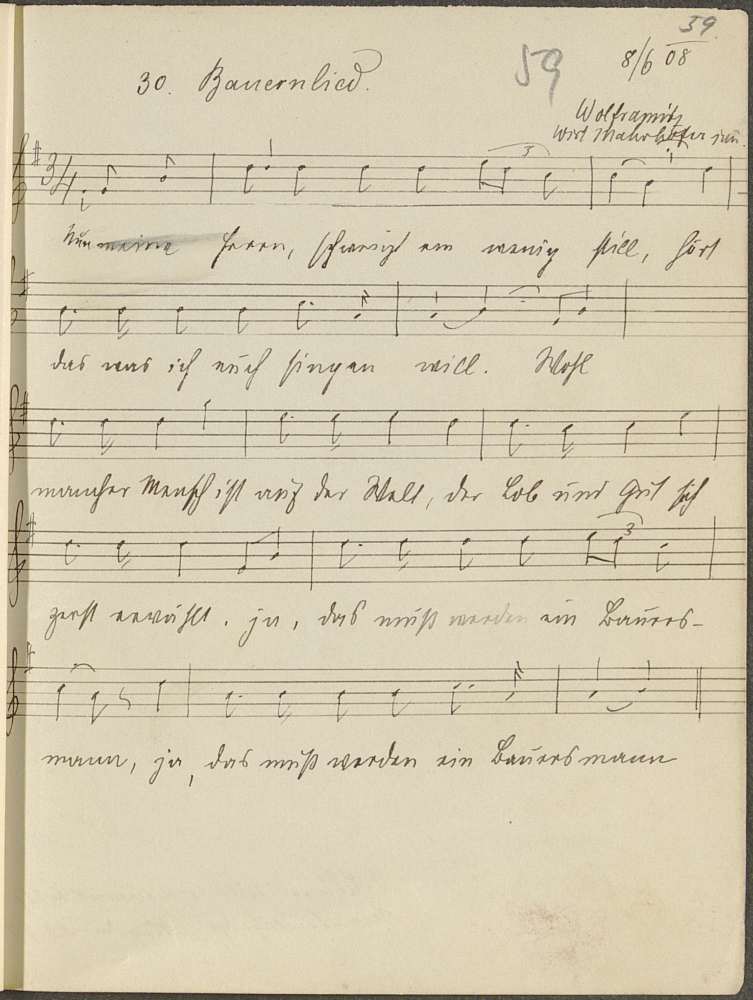 59.
8/6 08
30. Bauernlied.
59
Wolframitz
Wirt Mahrhofer jun.
3/4
3
Nun meine Herrn, schweigt ein wenig still, hört
das was ich euch singen will. Wohl
mancher Mensch ist auf der Welt, der Lob und Gut sich
3
zerst erwählt. ja, das muß werden ein Bauers-
mann, ja, das muß werden ein Bauersmann